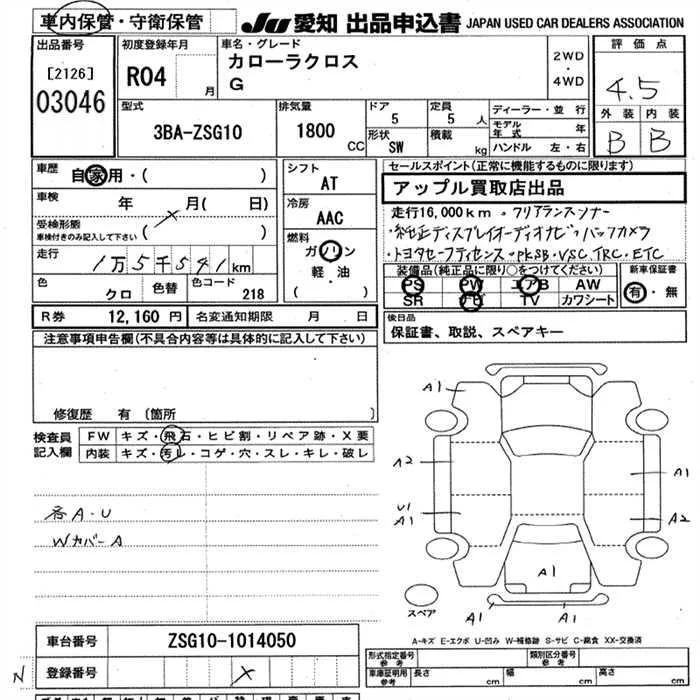 車内保管・守衛保管
JU 愛知 出品申込書 JAPAN USED CAR DEALERS ASSOCIATION
出品番号
[2126]
03046
初度登録年月
R04 月
車名・グレード
カローラクロス
G
2WD
・
4WD
評価点
4.5
外装 内装
B B
型式
3BA-ZSG10
排気量
1800 CC
ドア
5
定員
5 人
形状
SW
積載
kg
ディーラー・並行
モデル年式 年
ハンドル 左・右
車歴
自家用・( )
車検
年 月( 日)
受検形態
車検付きのみ記入して下さい ( )
走行
1万5千541km
色
クロ
色替
色コード
218
シフト
AT
冷房
AAC
燃料
ガソリン
軽・油
( )
セールスポイント(正常に機能するものに限ります)
アップル買取店出品
走行16,000km・クリアランスソナー
・純正ディスプレイオーディオナビ・バックカメラ
・トヨタセーフティセンス・PKSB・VSC.TRC.ETC
装備品(純正品に限り○をつけてください)
PS PW エアB AW
SR ナビ TV カワシート
新車保証書
有・無
R券 12,160 円
名変通知期限 月 日
後日品
保証書、取説、スペアキー
注意事項申告欄(不具合内容等は具体的に記入して下さい)
修復歴 有 〔箇所 〕
検査員
記入欄
FW キズ・飛石・ヒビ割・リペア跡・X要
内装 キズ・汚レ・コゲ・穴・スレ・キレ・破レ
各A・U
WカバーA
A1
A2
A1
U1
A1
A2
A1
A1
A1
スペア
A-キズ E-エクボ U-凹み W-補修跡 S-サビ C-腐食 XX-交換済
車台番号 ZSG10-1014050
登録番号
N
形式指定番号
参考
類別区分番号
参考
車庫証明用
参考
長さ cm 幅 cm 高さ cm